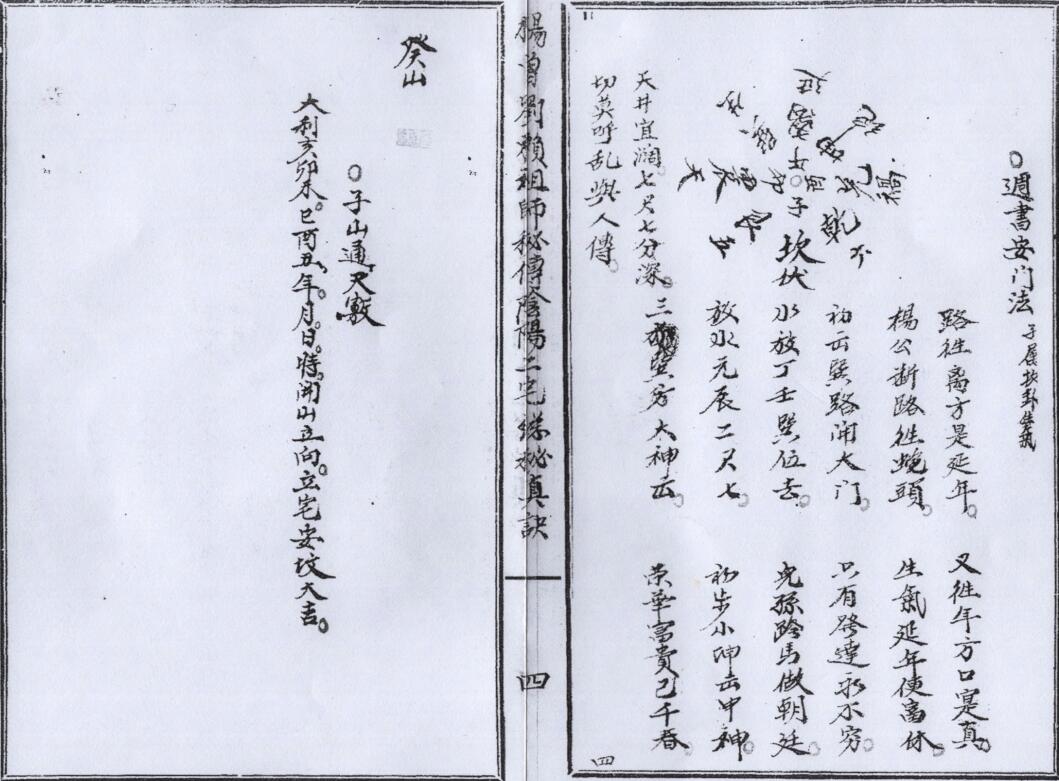 週書安门法
子屬坎卦
坎伏
乾
路徃离方是延年。
又徃午方口寔真。
楊公断路徃蛇頭。
生氣延年使高休。
初云巽路開大门。
只有路達永不穷。
水放丁壬巽位去。
兒孫跨马做朝廷。
放水元辰二尺七。
初步小神云中神。
三放巽方大神云。
荣華富貴己千春。
天井宜濶七尺七分深。
切莫呼乱與人傳。
四
楊曾劉賴祖師秘傳陰陽二宅總秘真訣
四
癸山
子山通天竅
大利亥卯未。巳酉丑年。月。日。時。開山立向。立宅安坟大吉。